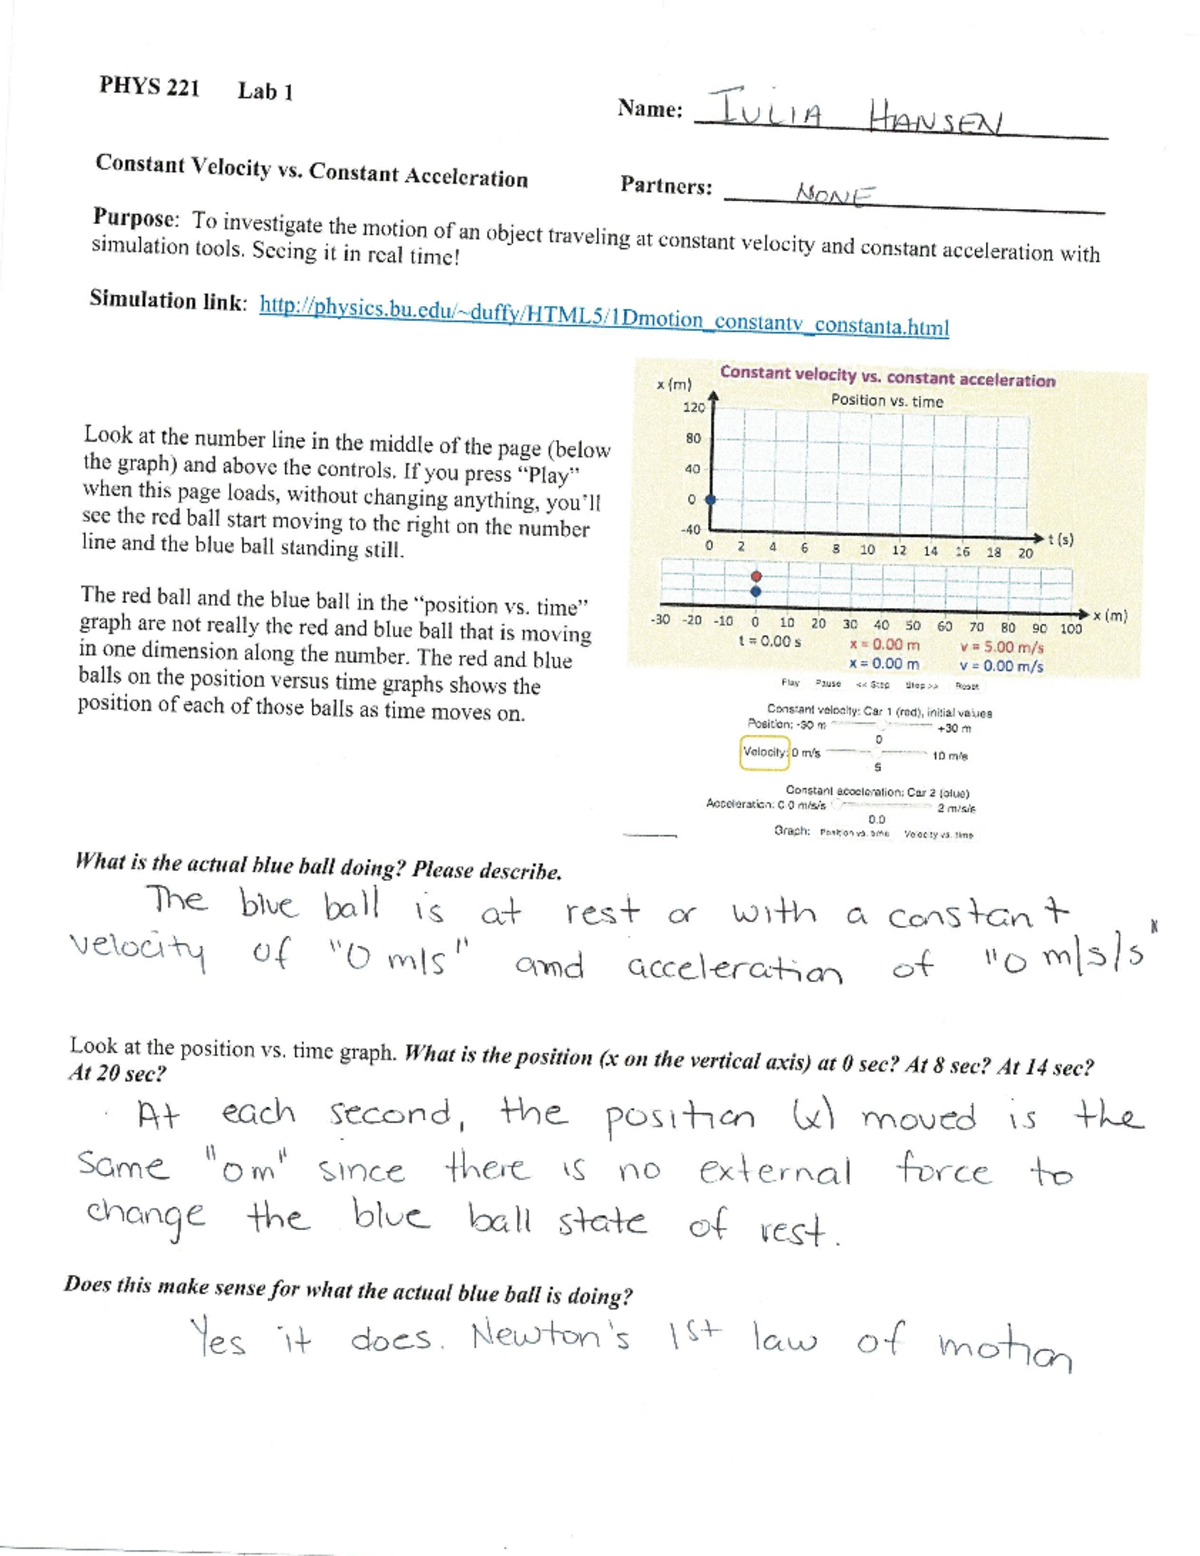 PHYS 221 Lab 1
Name: IULIA HANSEN
Constant Velocity vs. Constant Acceleration
Partners: NONE
Purpose: To investigate the motion of an object traveling at constant velocity and constant acceleration with
simulation tools. Seeing it in real time!
Simulation link: http://physics.bu.edu/~duffy/HTML5/1Dmotion_constantv_constanta.html
Look at the number line in the middle of the page (below
the graph) and above the controls. If you press “Play”
when this page loads, without changing anything, you’ll
see the red ball start moving to the right on the number
line and the blue ball standing still.
The red ball and the blue ball in the “position vs. time”
graph are not really the red and blue ball that is moving
in one dimension along the number. The red and blue
balls on the position versus time graphs shows the
position of each of those balls as time moves on.
Constant velocity vs. constant acceleration
Position vs. time
x (m)
120
80
40
0
-40
0 2 4 6 8 10 12 14 16 18 20
t (s)
-30 -20 -10 0 10 20 30 40 50 60 70 80 90 100
x (m)
t = 0.00 s x = 0.00 m v = 5.00 m/s
x = 0.00 m v = 0.00 m/s
Play Pause << Step Step >> Reset
Constant velocity: Car 1 (red), initial values
Position: -30 m +30 m
0
Velocity: 0 m/s 10 m/s
5
Constant acceleration: Car 2 (blue)
Acceleration: 0.0 m/s/s 2 m/s/s
0.0
Graph: Position vs. time Velocity vs. time
What is the actual blue ball doing? Please describe.
The blue ball is at rest or with a constant
velocity of "0 m/s" and acceleration of "0 m/s/s"
Look at the position vs. time graph. What is the position (x on the vertical axis) at 0 sec? At 8 sec? At 14 sec?
At 20 sec?
At each second, the position (x) moved is the
same "0m" since there is no external force to
change the blue ball state of rest.
Does this make sense for what the actual blue ball is doing?
Yes it does. Newton's 1st law of motion